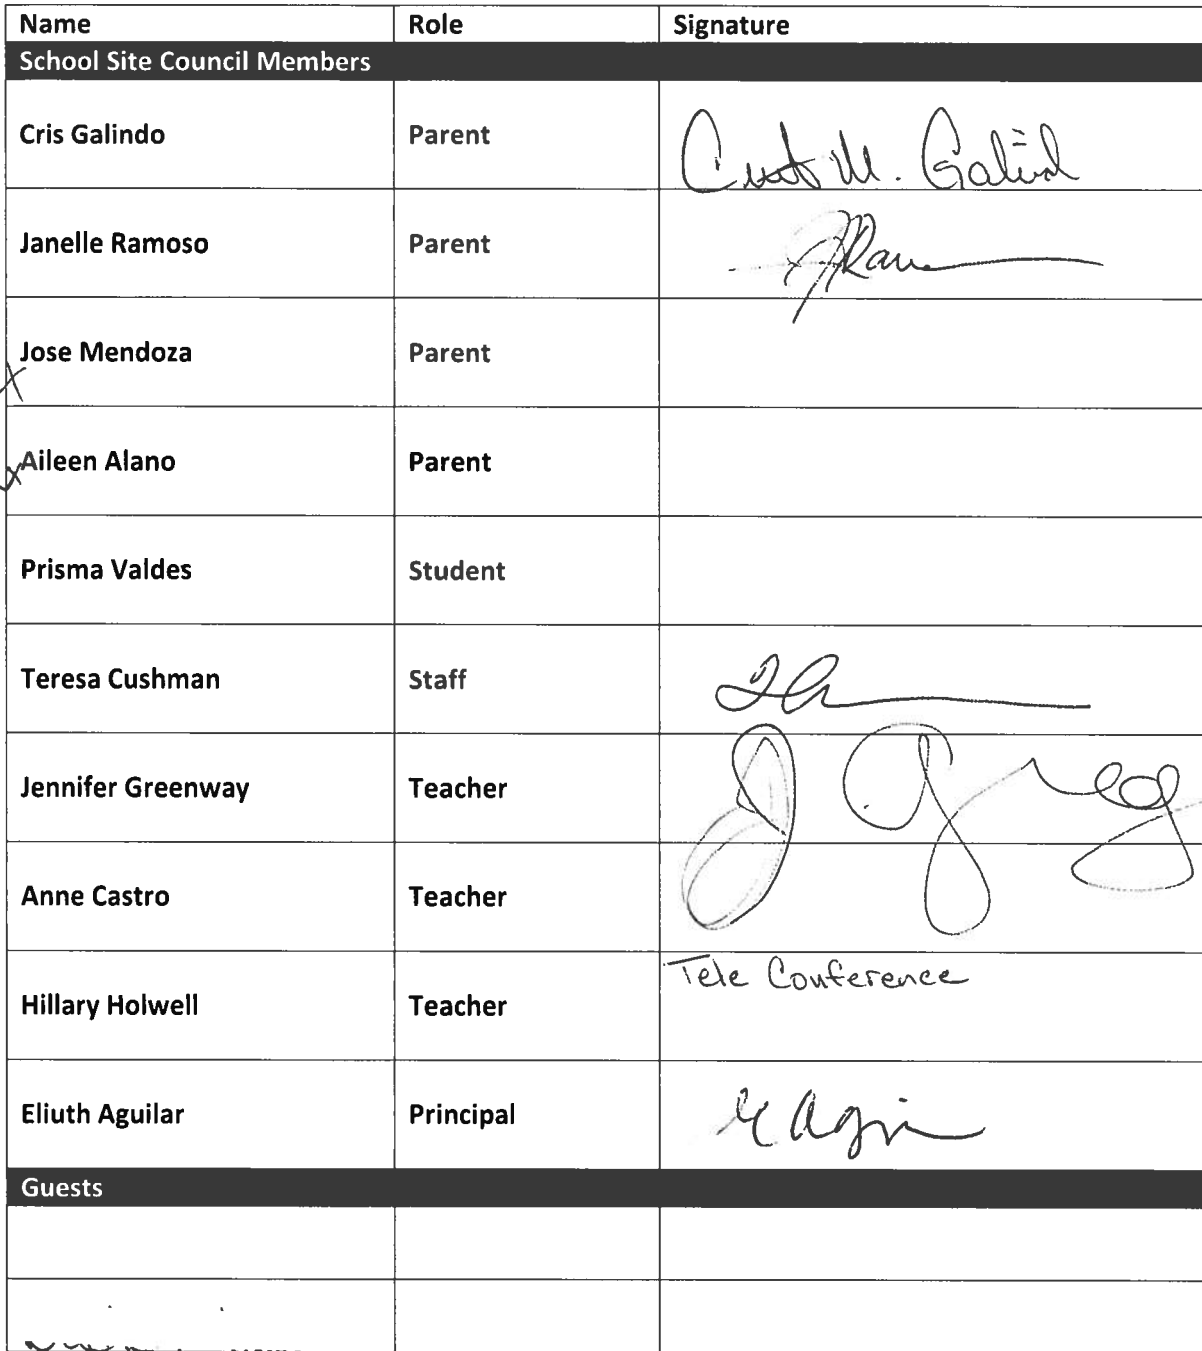 Name Role Signature
School Site Council Members
Cris Galindo Parent
Janelle Ramoso Parent
Jose Mendoza Parent
Aileen Alano Parent
Prisma Valdes Student
Teresa Cushman Staff
Jennifer Greenway Teacher
Anne Castro Teacher
Hillary Holwell Teacher Tele Conference
Eliuth Aguilar Principal
Guests